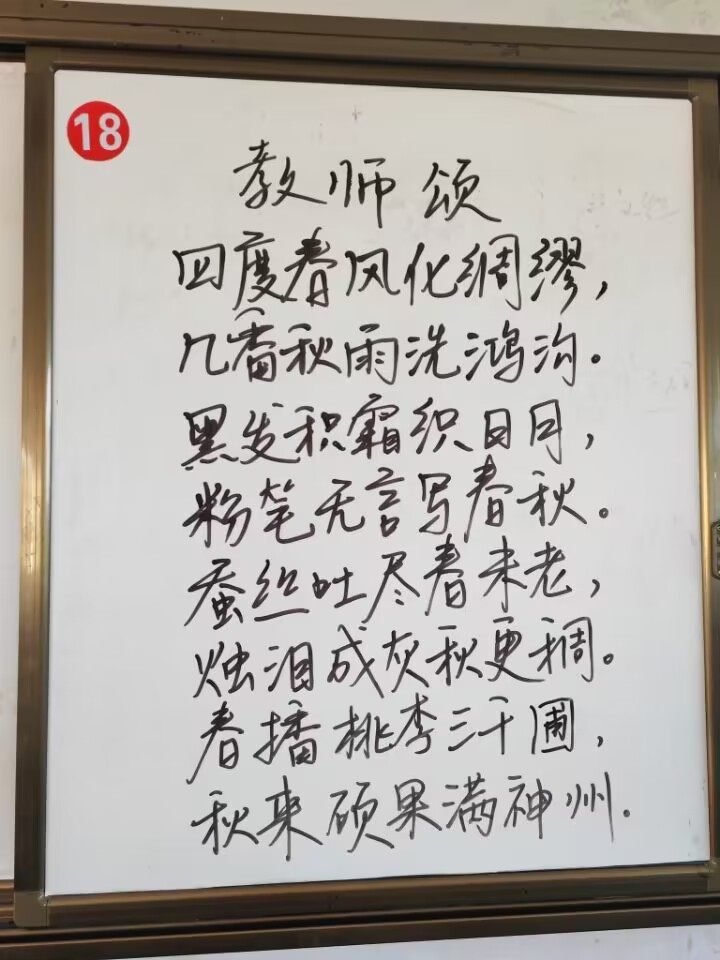 18
教师颂
四度春风化绸缪，
几番秋雨洗鸿沟。
黑发积霜织日月，
粉笔无言写春秋。
蚕丝吐尽春未老，
烛泪成灰秋更稠。
春播桃李三千圃，
秋来硕果满神州.